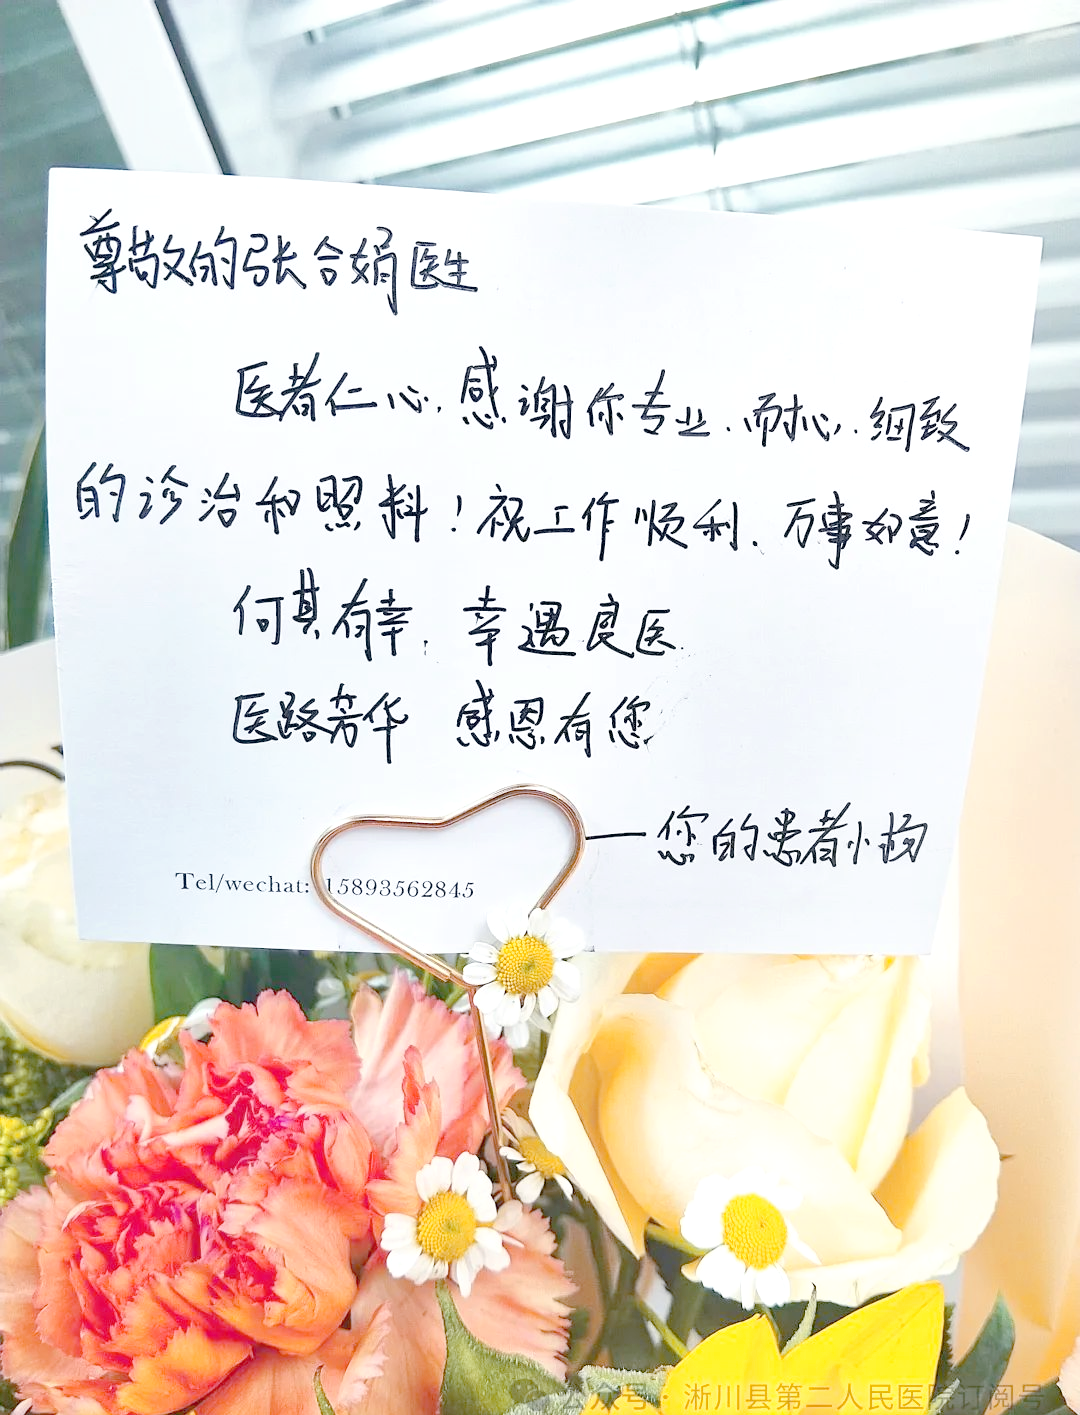 尊敬的张合娟医生
医者仁心,感谢你专业、耐心、细致
的诊治和照料!祝工作顺利、万事如意!
何其有幸,幸遇良医
医路芳华 感恩有您
——您的患者小杨
Tel/wechat: 15893562845
公众号 · 淅川县第二人民医院订阅号